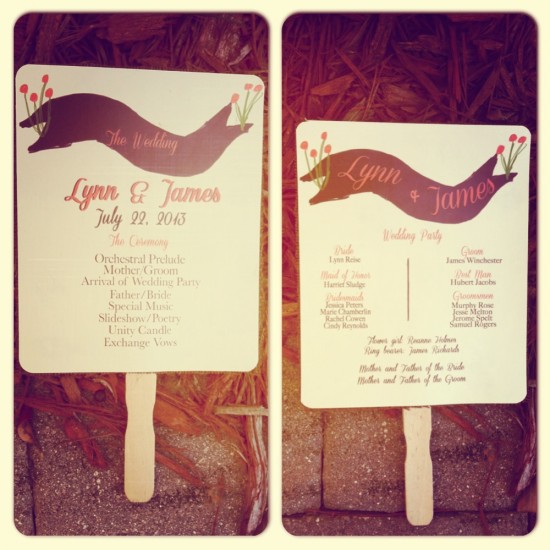 The Wedding
Lynn & James
July 22, 2013
The Ceremony
Orchestral Prelude
Mother/Groom
Arrival of Wedding Party
Father/Bride
Special Music
Slideshow/Poetry
Unity Candle
Exchange Vows
Lynn & James
Wedding Party
Bride
Lynn Reise
Maid of Honor
Harriet Sludge
Bridesmaids
Jessica Peters
Marie Chamberlin
Rachel Cowen
Cindy Reynolds
Groom
James Winchester
Best Man
Hubert Jacobs
Groomsmen
Murphy Rose
Jesse Melton
Jerome Spelt
Samuel Rogers
Flower girl: Roxanne Helmer
Ring bearer: James Richards
Mother and Father of the Bride
Mother and Father of the Groom